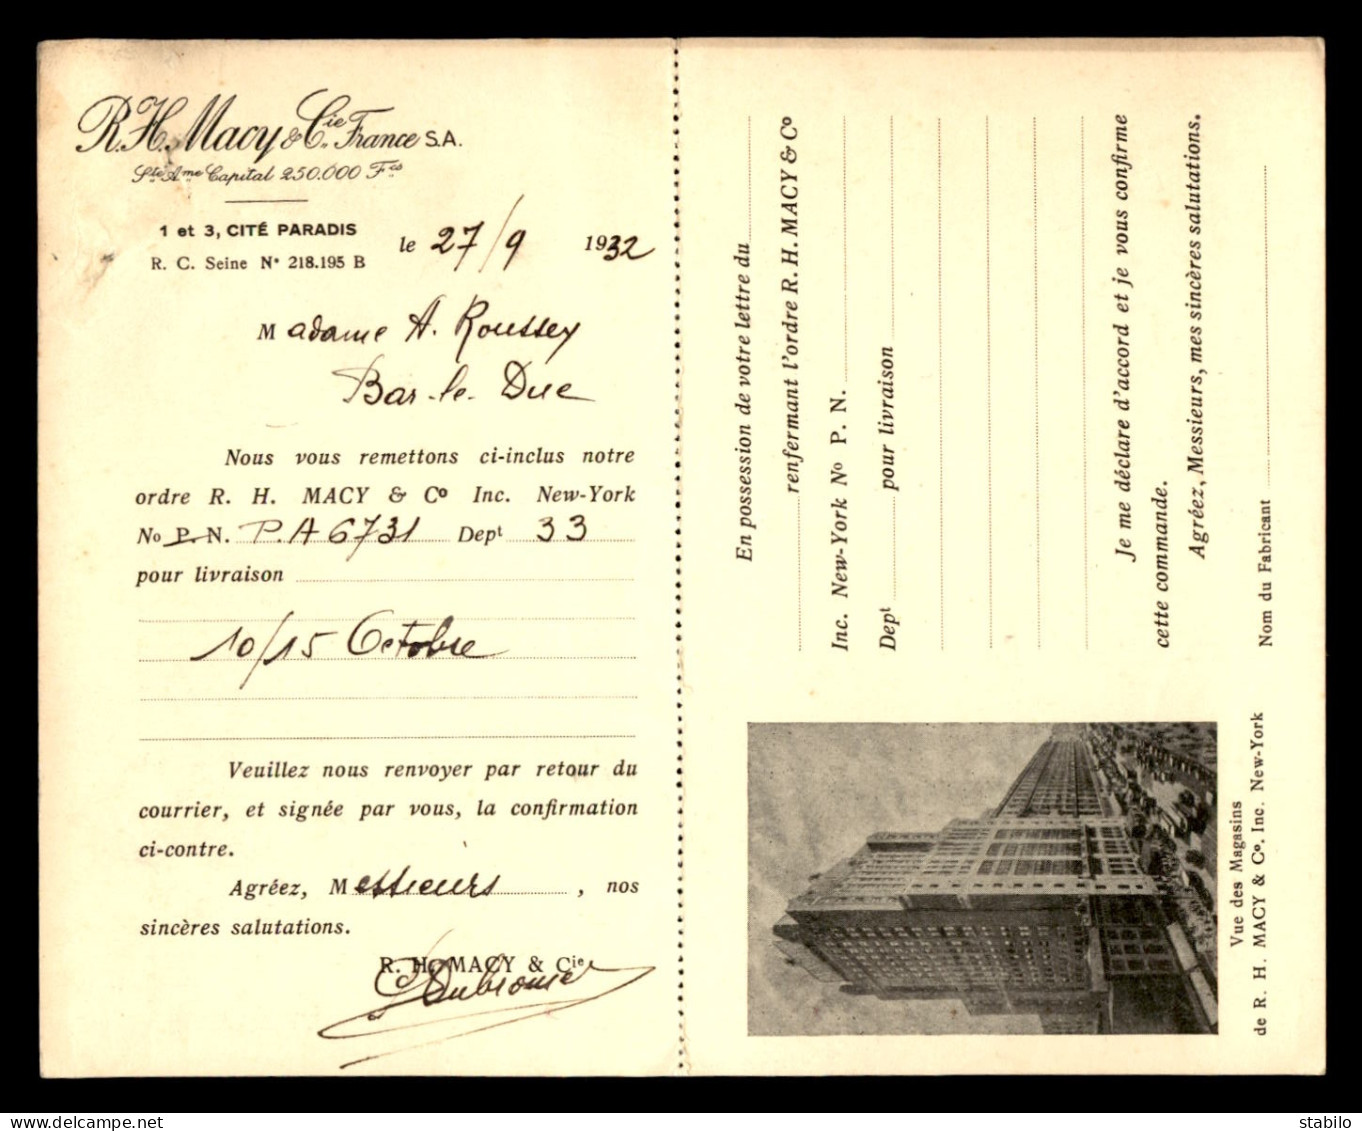 R. H. Macy & Cie. France S.A.
Sté Ame Capital 250.000 Fcs
1 et 3, CITÉ PARADIS
R. C. Seine No 218.195 B
le 27/9 1932
Madame A. Roussey
Bar-le-Duc
Nous vous remettons ci-inclus notre
ordre R. H. MACY & Co Inc. New-York
No P. N. P.A 6731 Dept 33
pour livraison
10/15 Octobre
Veuillez nous renvoyer par retour du
courrier, et signée par vous, la confirmation
ci-contre.
Agréez, Messieurs, nos
sincères salutations.
R. H. MACY & Cie
En possession de votre lettre du
renfermant l'ordre R. H. MACY & Co
Inc. New-York No P. N.
Dept pour livraison
Je me déclare d'accord et je vous confirme
cette commande.
Agréez, Messieurs, mes sincères salutations.
Nom du Fabricant
Vue des Magasins
de R. H. MACY & Co. Inc. New-York
delcampe.net
stabilo